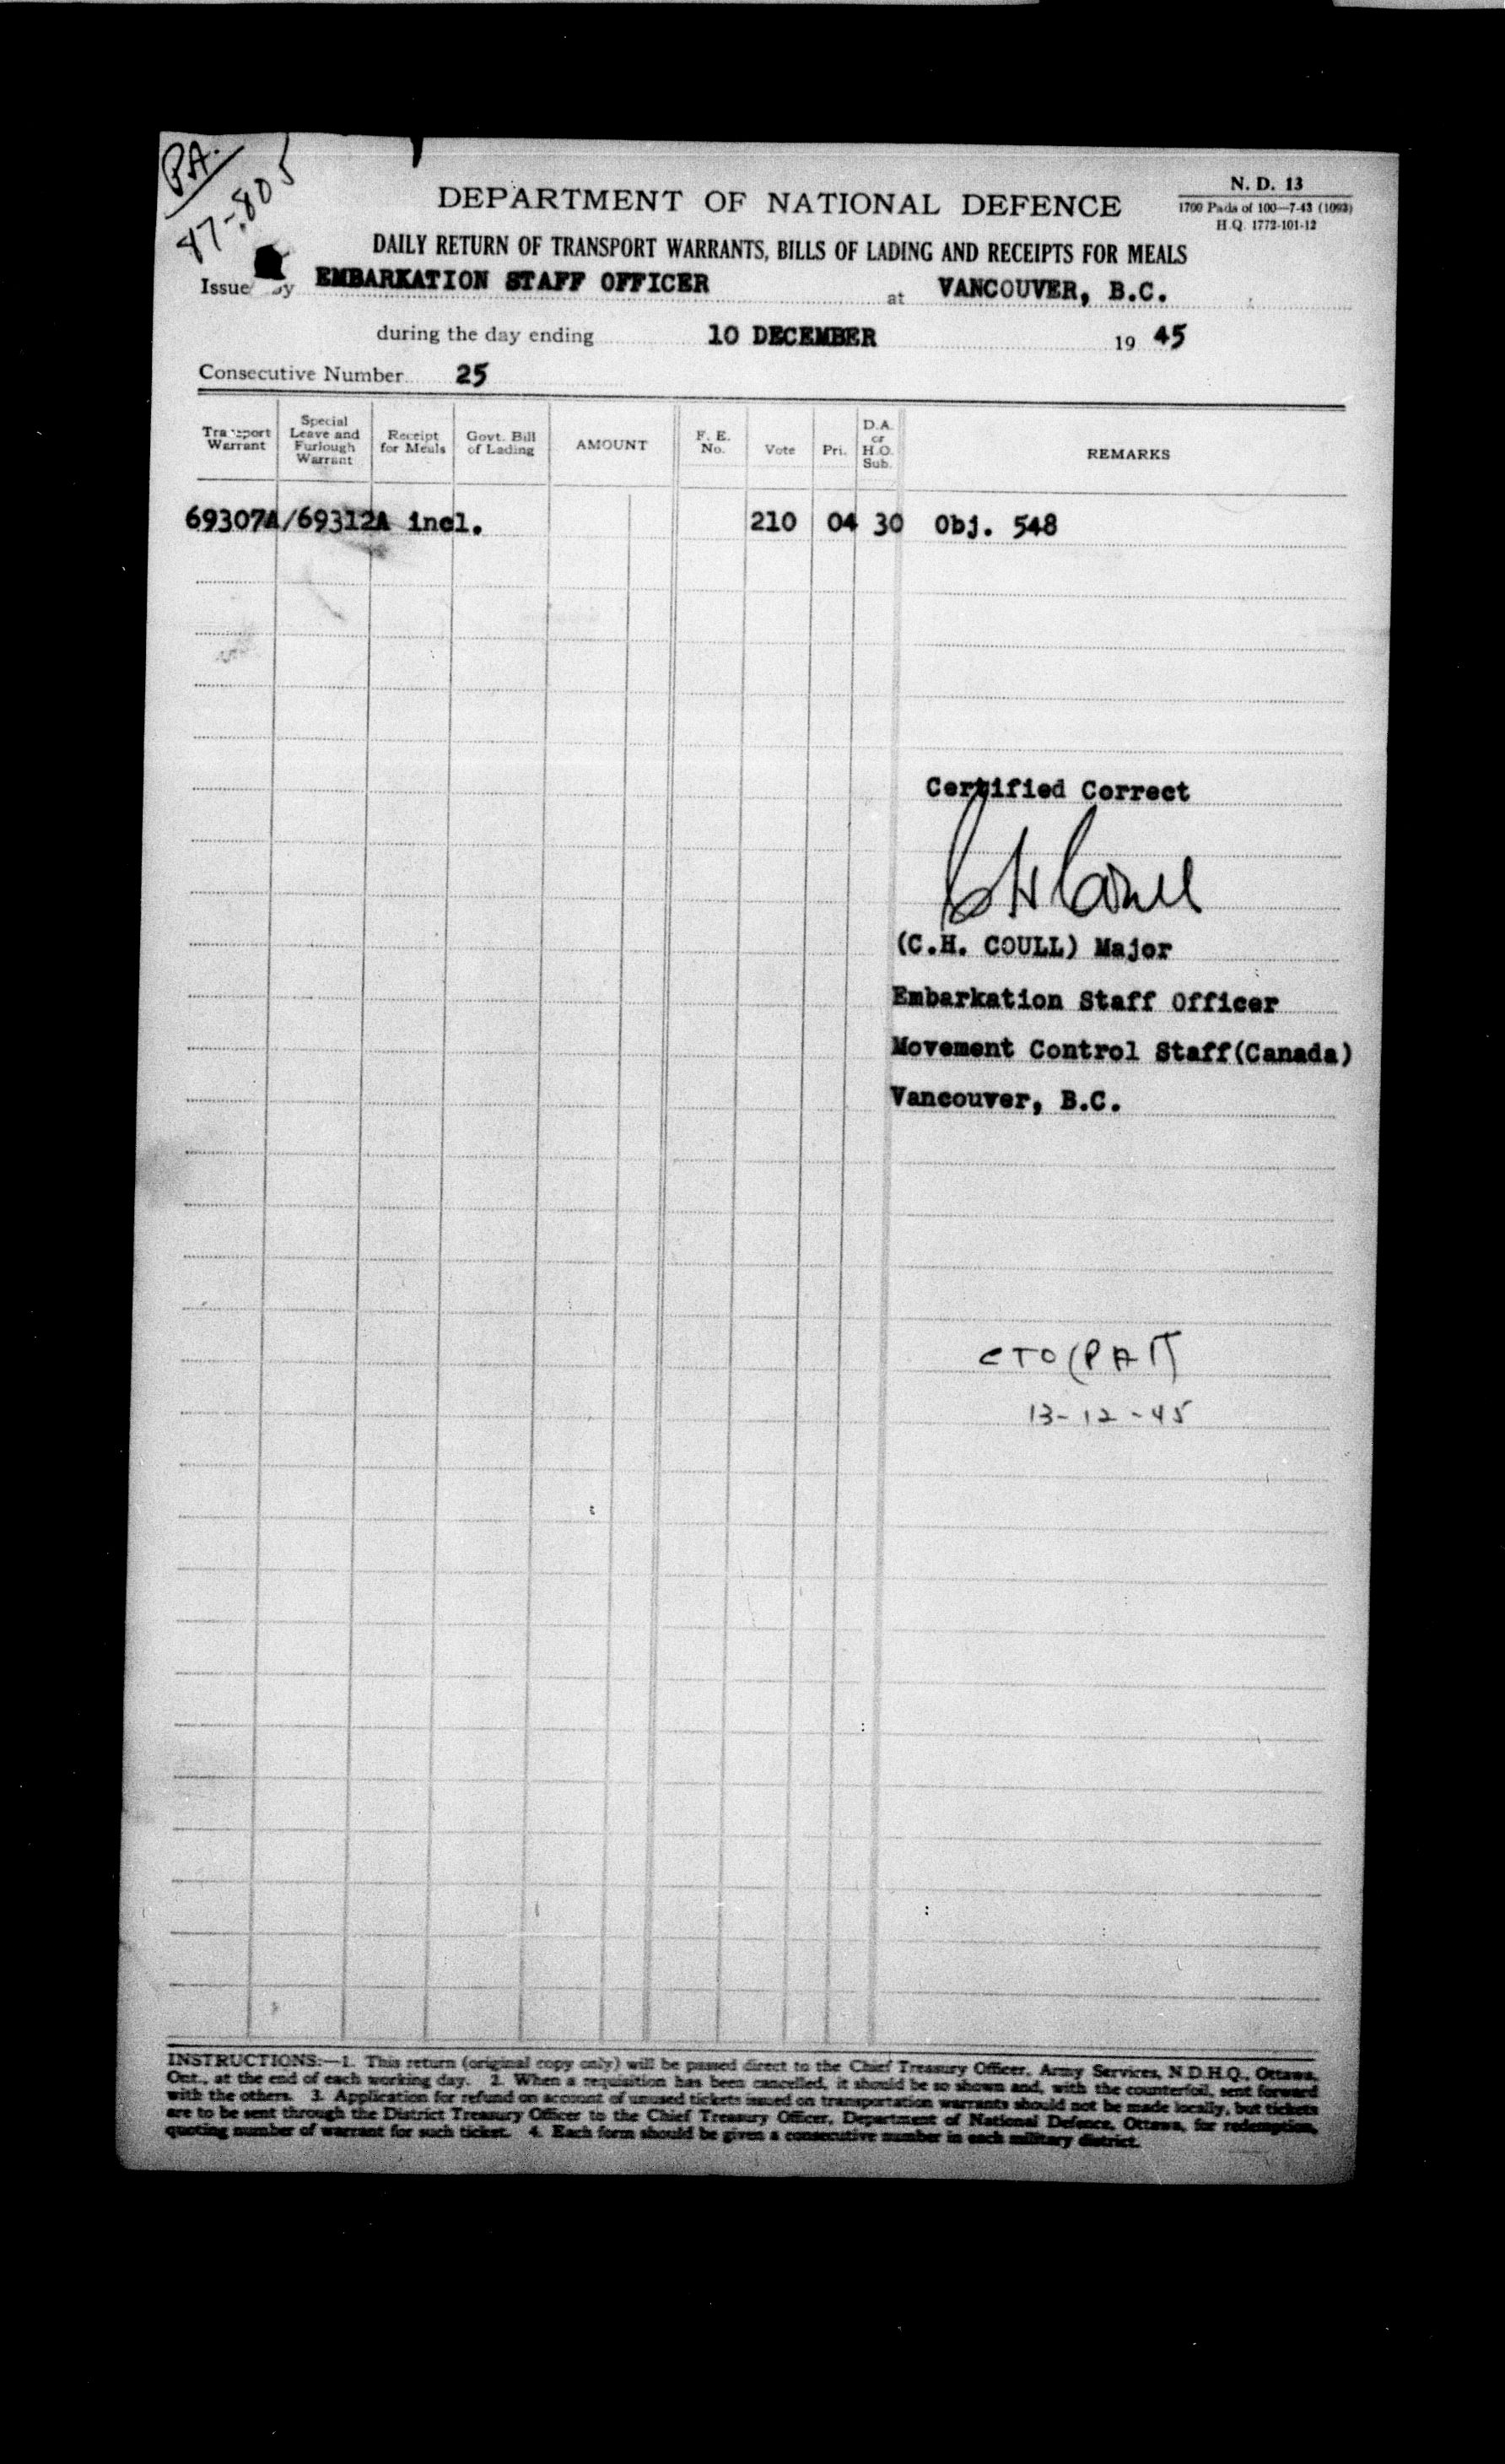 P.A.
47-805
DEPARTMENT OF NATIONAL DEFENCE
N. D. 13
1700 Pads of 100—7-43 (1093)
H.Q. 1772-101-12
DAILY RETURN OF TRANSPORT WARRANTS, BILLS OF LADING AND RECEIPTS FOR MEALS
Issue by EMBARKATION STAFF OFFICER at VANCOUVER, B.C.
during the day ending 10 DECEMBER 19 45
Consecutive Number 25
Transport Warrant
Special Leave and Furlough Warrant
Receipt for Meals
Govt. Bill of Lading
AMOUNT
F. E. No.
Vote
Pri.
D.A. or H.O. Sub.
REMARKS
69307A/69312A incl. 210 04 30 Obj. 548
Certified Correct
(C.H. COULL) Major
Embarkation Staff Officer
Movement Control Staff(Canada)
Vancouver, B.C.
CTO (PAT)
13-12-45
INSTRUCTIONS:—1. This return (original copy only) will be passed direct to the Chief Treasury Officer, Army Services, N.D.H.Q., Ottawa,
Ont., at the end of each working day. 2. When a requisition has been cancelled, it should be so shown and, with the counterfoil, sent forward
with the others. 3. Application for refund on account of unused tickets issued on transportation warrants should not be made locally, but tickets
are to be sent through the District Treasury Officer to the Chief Treasury Officer, Department of National Defence, Ottawa, for redemption,
quoting number of warrant for such ticket. 4. Each form should be given a consecutive number in each military district.